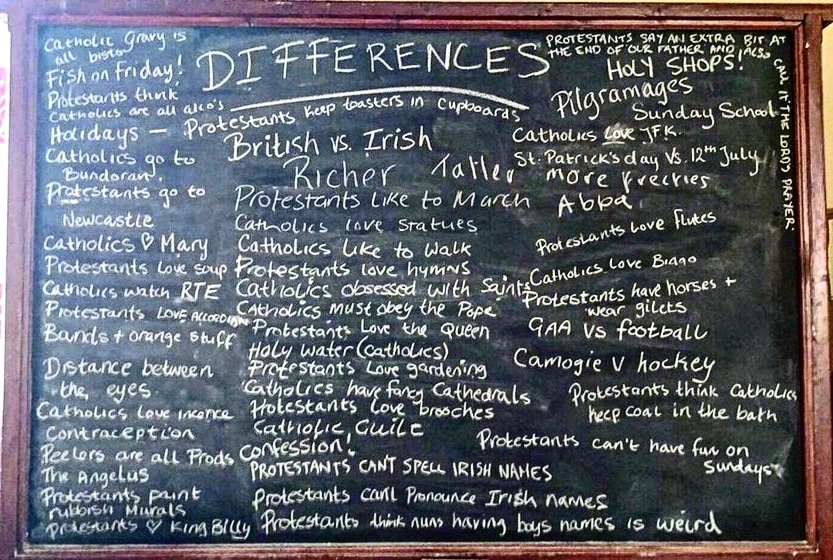 DIFFERENCES
Catholic Gravy is
all bisto
Fish on Friday!
Protestants think
Catholics are all alco's
Holidays –
Catholics go to
Bundoran,
Protestants go to
Newcastle
Catholics ♡ Mary
Protestants love soup
Catholics watch RTE
Protestants LOVE ACCORDIAN
Bands + orange stuff
Distance between
the eyes.
Catholics love incence
Contraception
Peelers are all Prods
The Angelus
Protestants paint
rubbish Murals
Protestants ♡ King Billy
Protestants keep toasters in cupboards
British vs. Irish
Richer Taller
Protestants like to March
Catholics love statues
Catholics like to walk
Protestants love hymns
Catholics obsessed with Saints
Catholics must obey the Pope
Protestants love the Queen
Holy water (Catholics)
Protestants love gardening
Catholics have fancy Cathedrals
Protestants love brooches
Catholic Guilt
Confession!
PROTESTANTS CAN'T SPELL IRISH NAMES
Protestants can't Pronounce Irish names
Protestants think nuns having boys names is weird
PROTESTANTS SAY AN EXTRA BIT AT
THE END OF OUR FATHER AND ALSO
CALL IT THE LORD'S PRAYER.
HOLY SHOPS!
Pilgramages
Sunday School
Catholics love JFK.
St. Patrick's day Vs. 12th July
more freckles
Abba
Protestants Love Flutes
Catholics Love Bingo
Protestants have horses +
wear gilets
GAA vs football
Camogie V hockey
Protestants think Catholics
keep coal in the bath
Protestants can't have fun on
Sundays